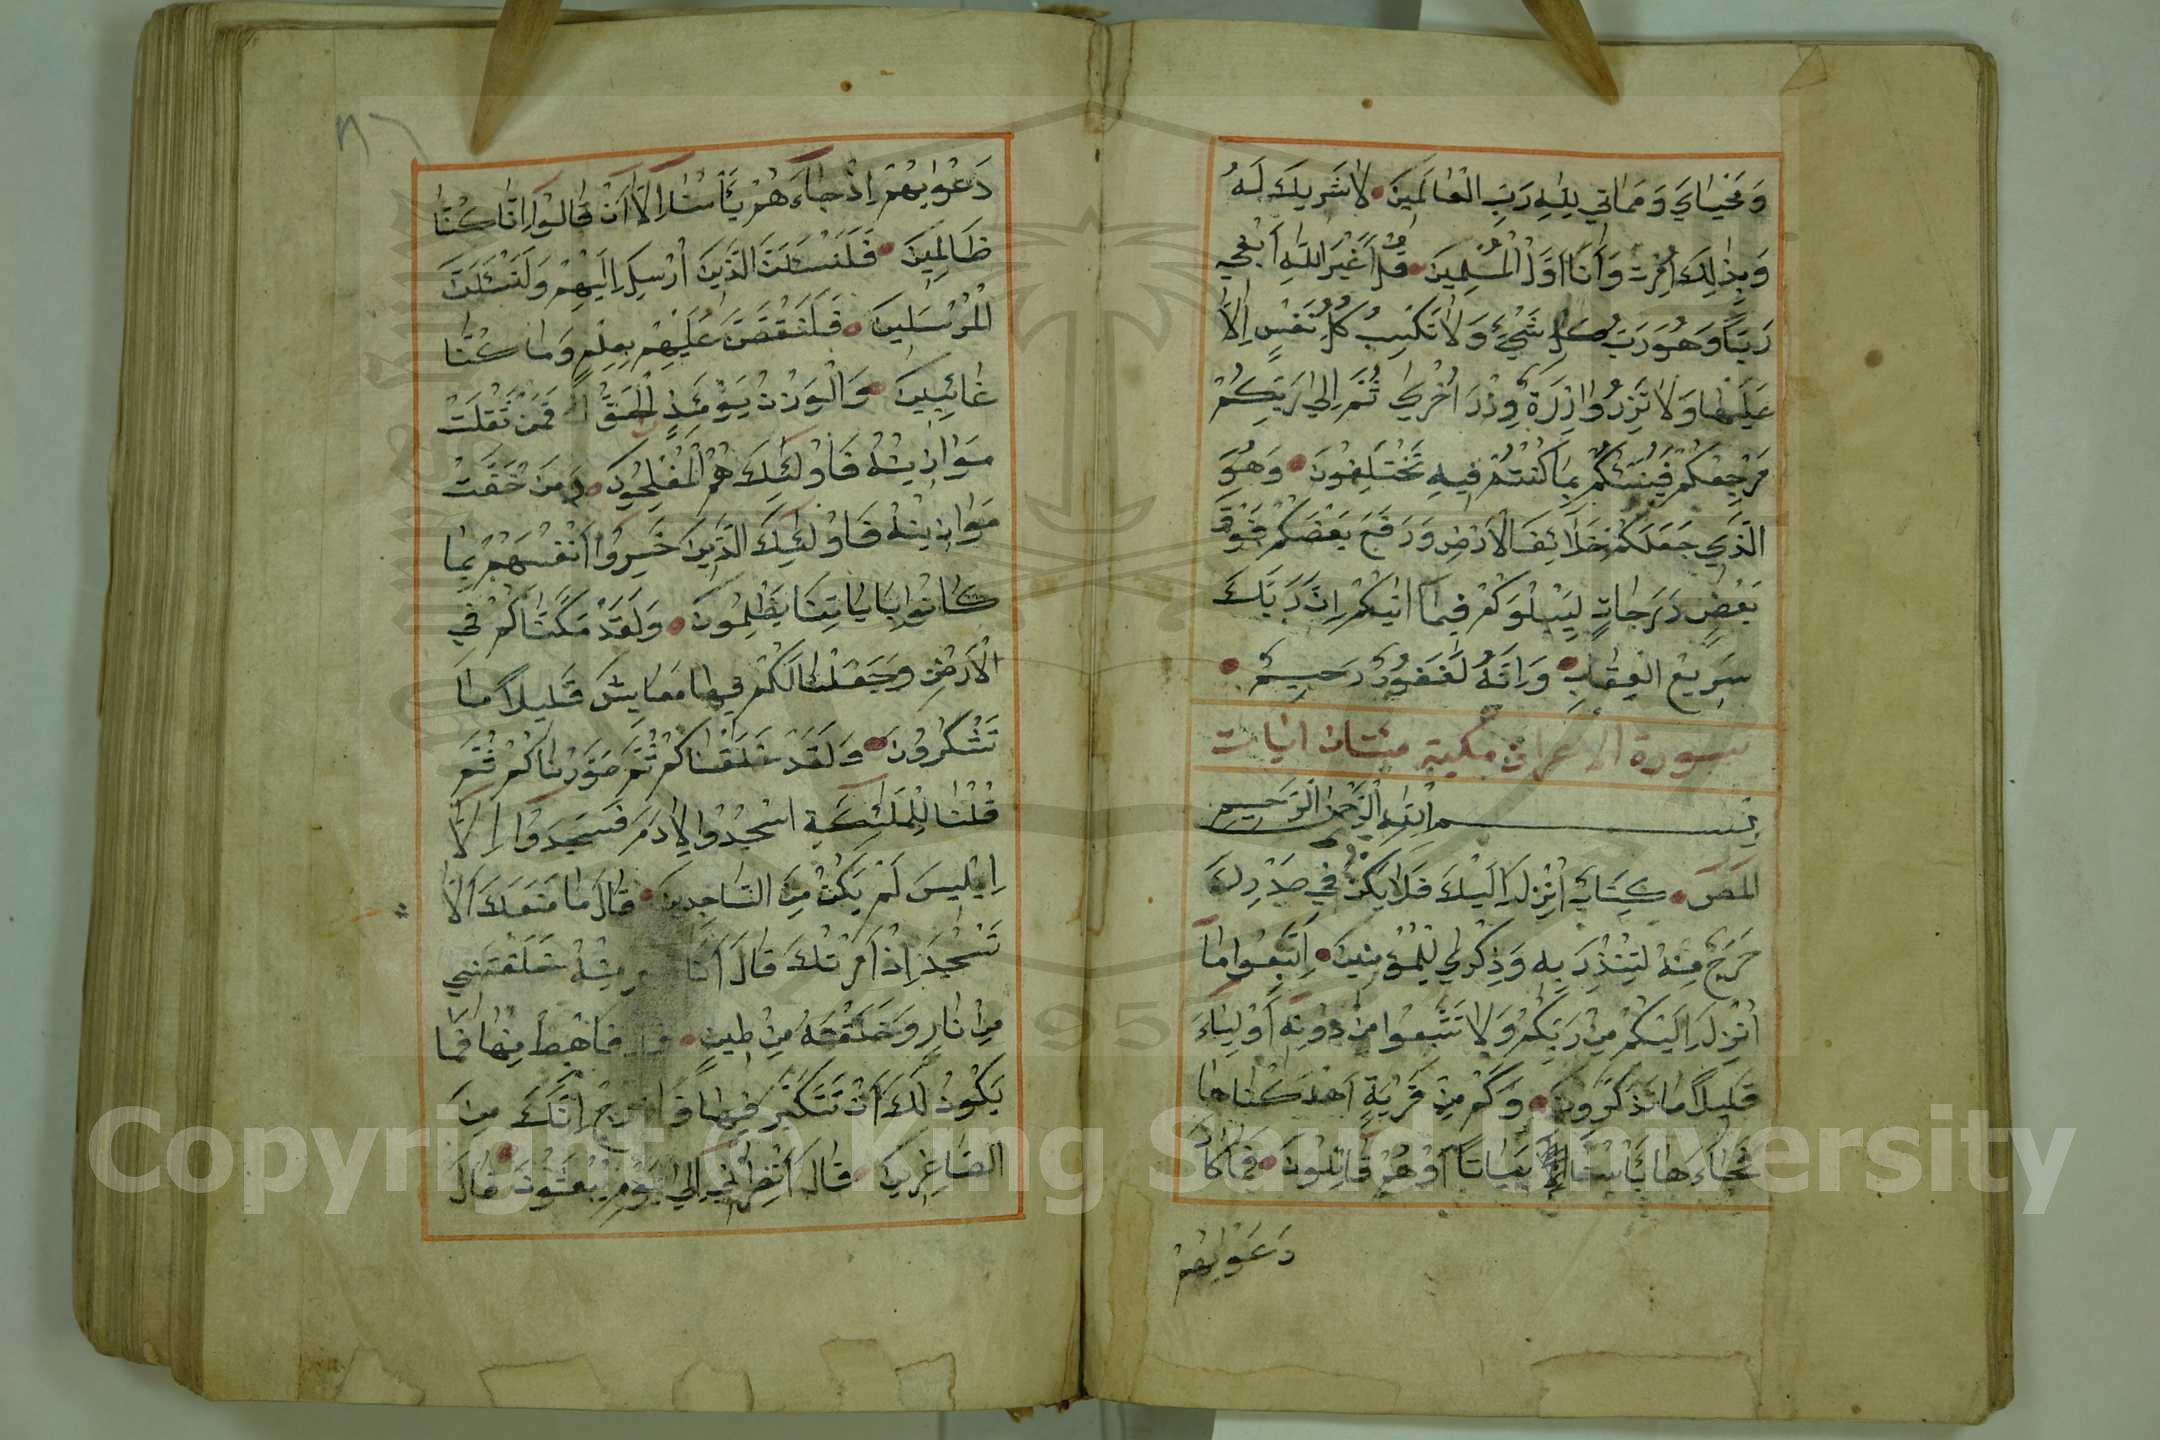 وَمَحْيَايَ وَمَمَاتِي لِلّٰهِ رَبِّ الْعَالَمِينَ لَا شَرِيكَ لَهُ
وَبِذٰلِكَ أُمِرْتُ وَأَنَا أَوَّلُ الْمُسْلِمِينَ قُلْ أَغَيْرَ اللّٰهِ أَبْغِي
رَبًّا وَهُوَ رَبُّ كُلِّ شَيْءٍ وَلَا تَكْسِبُ كُلُّ نَفْسٍ إِلَّا
عَلَيْهَا وَلَا تَزِرُ وَازِرَةٌ وِزْرَ أُخْرَى ثُمَّ إِلَى رَبِّكُمْ
مَرْجِعُكُمْ فَيُنَبِّئُكُمْ بِمَا كُنْتُمْ فِيهِ تَخْتَلِفُونَ وَهُوَ
الَّذِي جَعَلَكُمْ خَلَائِفَ الْأَرْضِ وَرَفَعَ بَعْضَكُمْ فَوْقَ
بَعْضٍ دَرَجَاتٍ لِيَبْلُوَكُمْ فِيمَا اٰتٰيكُمْ إِنَّ رَبَّكَ
سَرِيعُ الْعِقَابِ وَإِنَّهُ لَغَفُورٌ رَحِيمٌ
سورة الاعراف مكية مئتان ايات
بِسْمِ اللّٰهِ الرَّحْمٰنِ الرَّحِيمِ
الٓمٓصٓ كِتَابٌ أُنْزِلَ إِلَيْكَ فَلَا يَكُنْ فِي صَدْرِكَ
حَرَجٌ مِنْهُ لِتُنْذِرَ بِهِ وَذِكْرٰى لِلْمُؤْمِنِينَ اتَّبِعُوا مَا
أُنْزِلَ إِلَيْكُمْ مِنْ رَبِّكُمْ وَلَا تَتَّبِعُوا مِنْ دُونِهِ أَوْلِيَاءَ
قَلِيلًا مَا تَذَكَّرُونَ وَكَمْ مِنْ قَرْيَةٍ أَهْلَكْنَاهَا
فَجَاءَهَا بَأْسُنَا بَيَاتًا أَوْ هُمْ قَائِلُونَ فَمَا كَانَ
دَعْوٰيهُمْ
دَعْوٰيهُمْ إِذْ جَاءَهُمْ بَأْسُنَا إِلَّا أَنْ قَالُوا إِنَّا كُنَّا
ظَالِمِينَ فَلَنَسْئَلَنَّ الَّذِينَ أُرْسِلَ إِلَيْهِمْ وَلَنَسْئَلَنَّ
الْمُرْسَلِينَ فَلَنَقُصَّنَّ عَلَيْهِمْ بِعِلْمٍ وَمَا كُنَّا
غَائِبِينَ وَالْوَزْنُ يَوْمَئِذٍ الْحَقُّ فَمَنْ ثَقُلَتْ
مَوَازِينُهُ فَأُولٰئِكَ هُمُ الْمُفْلِحُونَ وَمَنْ خَفَّتْ
مَوَازِينُهُ فَأُولٰئِكَ الَّذِينَ خَسِرُوا أَنْفُسَهُمْ بِمَا
كَانُوا بِاٰيَاتِنَا يَظْلِمُونَ وَلَقَدْ مَكَّنَّاكُمْ فِي
الْأَرْضِ وَجَعَلْنَا لَكُمْ فِيهَا مَعَايِشَ قَلِيلًا مَا
تَشْكُرُونَ وَلَقَدْ خَلَقْنَاكُمْ ثُمَّ صَوَّرْنَاكُمْ ثُمَّ
قُلْنَا لِلْمَلٰئِكَةِ اسْجُدُوا لِاٰدَمَ فَسَجَدُوا إِلَّا
إِبْلِيسَ لَمْ يَكُنْ مِنَ السَّاجِدِينَ قَالَ مَا مَنَعَكَ أَلَّا
تَسْجُدَ إِذْ أَمَرْتُكَ قَالَ أَنَا مِنْهُ خَلَقْتَنِي
مِنْ نَارٍ وَخَلَقْتَهُ مِنْ طِينٍ فَاهْبِطْ مِنْهَا فَمَا
يَكُونُ لَكَ أَنْ تَتَكَبَّرَ فِيهَا فَاخْرُجْ إِنَّكَ مِنَ
الصَّاغِرِينَ قَالَ أَنْظِرْنِي إِلَى يَوْمِ يُبْعَثُونَ قَالَ
Copyright © King Saud University